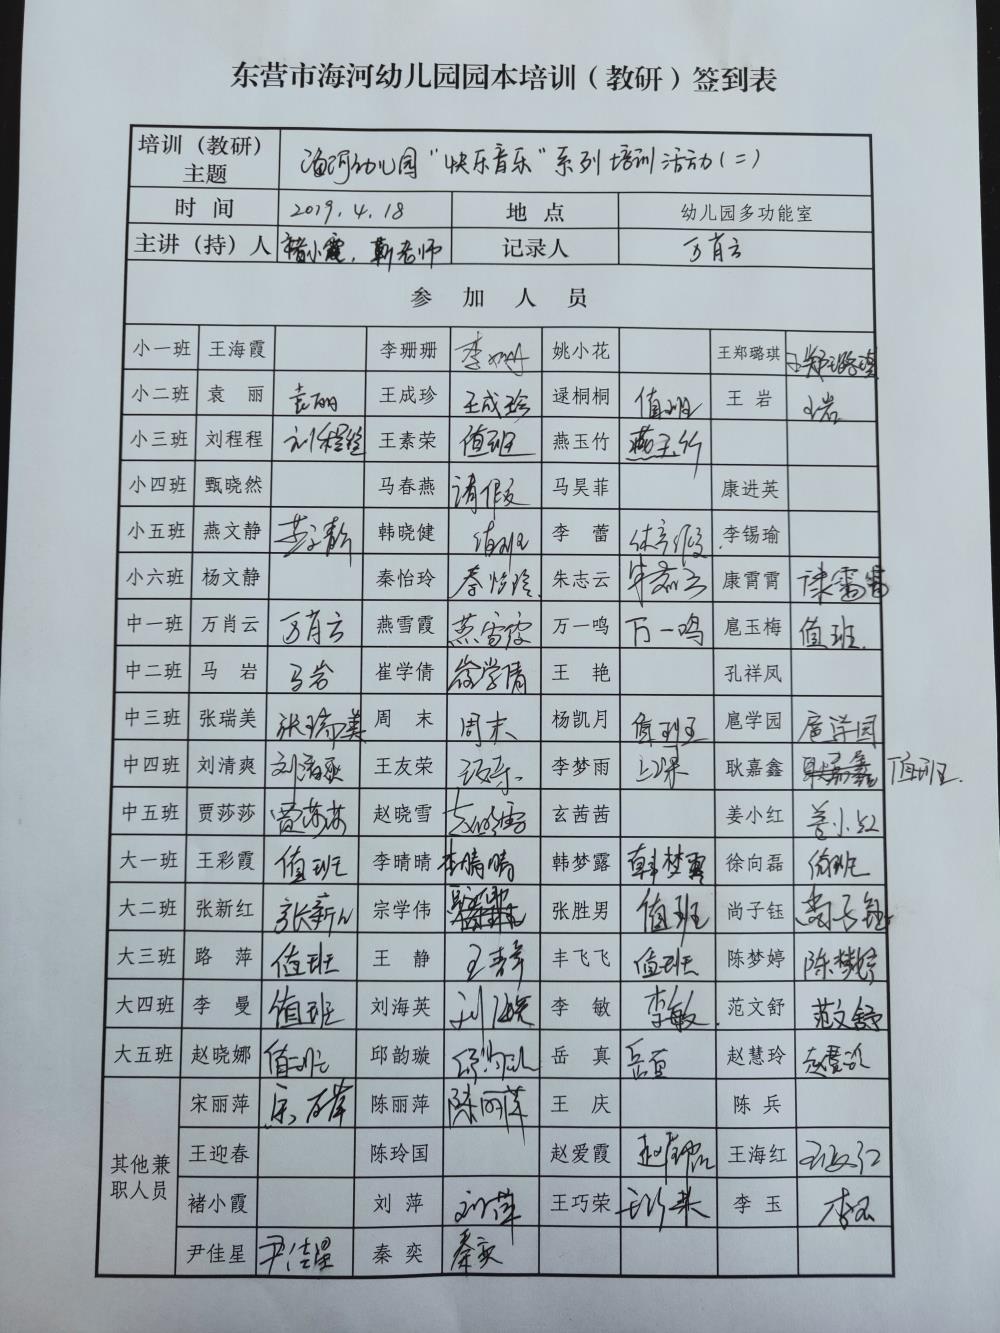 东营市海河幼儿园园本培训（教研）签到表
培训（教研）主题 海河幼儿园“快乐音乐”系列培训活动（二）
时 间 2019.4.18 地 点 幼儿园多功能室
主讲（持）人 褚小霞，靳老师 记录人 万肖云
参 加 人 员
小一班 王海霞 李珊珊 李姗 姚小花 王郑璐琪 王郑璐琪
小二班 袁 丽 袁丽 王成珍 王成珍 逯桐桐 值班 王 岩 王岩
小三班 刘程程 刘程程 王素荣 值班 燕玉竹 燕玉竹
小四班 甄晓然 马春燕 请假 马昊菲 康进英
小五班 燕文静 燕文静 韩晓健 值班 李 蕾 休产假 李锡瑜
小六班 杨文静 秦怡玲 秦怡玲 朱志云 朱志云 康霄霄 康霄霄
中一班 万肖云 万肖云 燕雪霞 燕雪霞 万一鸣 万一鸣 扈玉梅 值班
中二班 马 岩 马岩 崔学倩 崔学倩 王 艳 孔祥凤
中三班 张瑞美 张瑞美 周 末 周末 杨凯月 值班 扈学园 扈学园
中四班 刘清爽 刘清爽 王友荣 李梦雨 上课 耿嘉鑫 耿嘉鑫 值班
中五班 贾莎莎 贾莎莎 赵晓雪 赵晓雪 玄茜茜 姜小红 姜小红
大一班 王彩霞 值班 李晴晴 李晴晴 韩梦露 韩梦露 徐向磊 值班
大二班 张新红 张新红 宗学伟 张胜男 值班 尚子钰 尚子钰
大三班 路 萍 值班 王 静 王静 丰飞飞 值班 陈梦婷 陈梦婷
大四班 李 曼 值班 刘海英 刘海英 李 敏 李敏 范文舒 范文舒
大五班 赵晓娜 值班 邱韵璇 邱韵璇 岳 真 岳真 赵慧玲 赵慧玲
其他兼职人员 宋丽萍 宋丽萍 陈丽萍 陈丽萍 王 庆 陈 兵
王迎春 陈玲国 赵爱霞 赵爱霞 王海红 王海红
褚小霞 刘 萍 刘萍 王巧荣 王巧荣 李 玉 李玉
尹佳星 尹佳星 秦 奕 秦奕